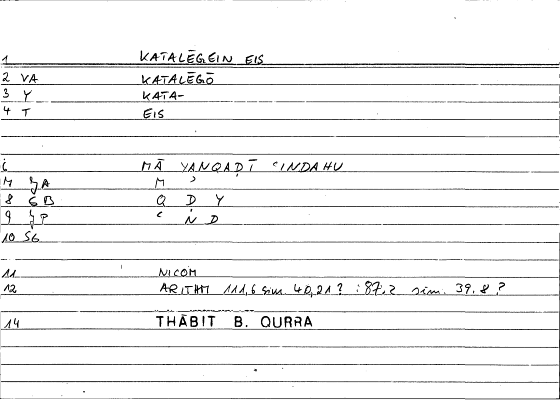 1 KATALĒGEIN EIS
2 VA KATALĒGŌ
3 Y KATA-
4 T EIS
MĀ YANQAḌĪ ʿINDAHU
A M ʾ
8 GB Q Ḍ Y
9 ʿ N D
10 SG
11 NICOM
12 ARITHM 111,6 sim. 40,21? : 87,2 sim. 39.8?
14 THĀBIT B. QURRA